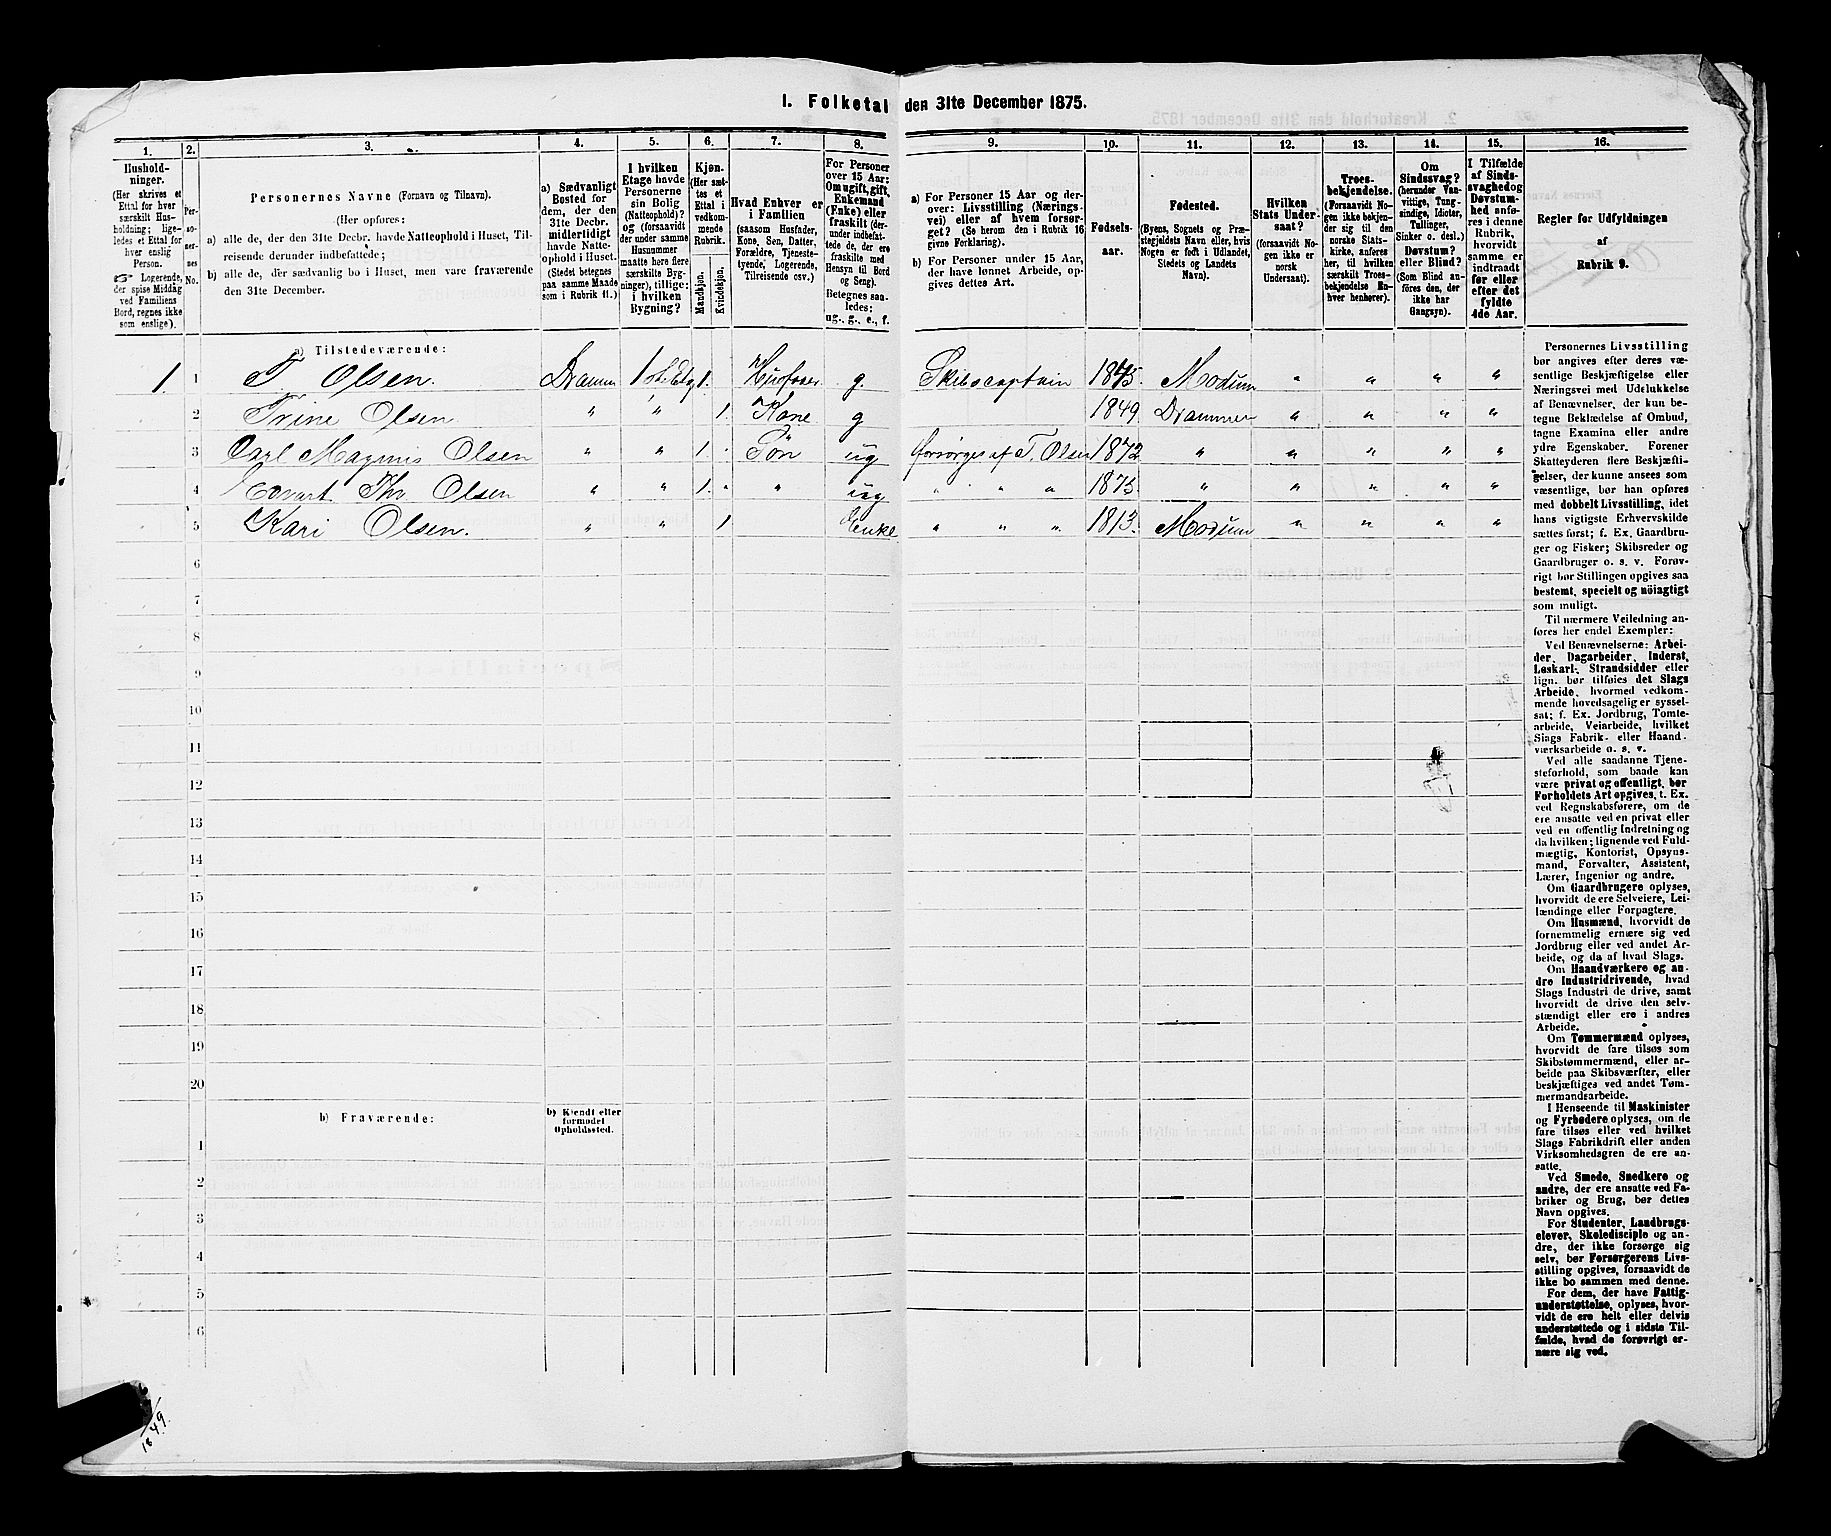 1. Folketal den 31te December 1875.
1.
Hushold-
ninger.
(Her skrives et
Ettal for hver
særskilt Hus-
holdning; lige-
ledes et Ettal for
hver enslig
Person.
Logerende,
der spise Middag
ved Familiens
Bord, regnes ikke
som enslige).
2.
Per-
so-
ner-
nes
No.
3.
Personernes Navne (Fornavn og Tilnavn).
(Her opføres:
a) alle de, der den 31te Decbr. havde Natteophold i Huset, Til-
reisende derunder indbefattede;
b) alle de, der sædvanlig bo i Huset, men vare fraværende
den 31te December.
4.
a) Sædvanligt
Bosted for
dem, der den
31te Decbr.
midlertidigt
havde Natte-
ophold i Huset.
(Stedet betegnes
paa samme Maade
som i Rubrik 11.)
5.
I hvilken
Etage havde
Personerne
sin Bolig
(Natteophold)?
og (forsaavidt
der under samme
Husnummer
maatte høre flere
særskilte Byg-
ninger), tillige:
i hvilken
Bygning?
6.
Kjøn.
(Her sæt-
tes et
Ettal i
vedkom-
mende
Rubrik.
Mandkjøn.
Kvindekjøn.
7.
Hvad Enhver er
i Familien
(saasom Husfader,
Kone, Søn, Datter,
Forældre, Tjeneste-
tyende, Logerende,
Tilreisende osv.)
8.
For Personer
over 15 Aar:
Om ugift, gift,
Enkemand
(Enke) eller
fraskilt (der-
under indbefat-
tede de, der ere
fraskilte med
Hensyn til Bord
og Seng).
Betegnes saa-
ledes:
ug., g., e., f.
9.
a) For Personer 15 Aar og der-
over: Livsstilling (Nærings-
vei) eller af hvem forsør-
get? (Se herom den i Rubrik 16
givne Forklaring).
b) For Personer under 15 Aar,
der have lønnet Arbeide, op-
gives dettes Art.
10.
Fødsels-
aar.
11.
Fødested.
(Byens, Sognets og Præ-
stegjeldets Navn eller, hvis
Nogen er født i Udlandet,
Stedets og Landets
Navn).
12.
Hvilken
Stats Under-
saat?
(forsaavidt No-
gen ikke er
norsk
Undersaat).
13.
Troes-
bekjendelse.
(Forsaavidt No-
gen ikke bekjen-
der sig til den
norske Stats-
kirke, anføres
her, til hvilken
særskilt Troes-
bekjendelse En-
hver henhører).
14.
Om
Sindssvag?
(herunder Van-
vittige, Tung-
sindige, Idioter,
Tullinger,
Sinker o. desl.)
Døvstum?
eller Blind?
(Som Blind an-
føres den, der
ikke har
Gangsyn).
15.
I Tilfælde
af Sinds-
svaghed og
Døvstum-
hed anfø-
res i denne
Rubrik,
hvorvidt
samme er
indtraadt
før eller
efter det
fyldte
4de Aar.
16.
Regler for Udfyldningen
af
Rubrik 9.
a) Tilstedeværende:
1. 1 T. Olsen. Dramm 1st Etg 1. Husfader g. Skibscaptain 1845. Modum " " " "
2 Trine Olsen " " 1. Kone g 1849. Drammen " " " "
3 Carl Magnus Olsen " " 1. Søn ug forsørges af T. Olsen 1872 " " " " "
4 Edvart Thv Olsen " " 1. " " ug " " " 1875 " " " " "
5 Kari Olsen. " " 1. Enke " " " 1813. Modum " " " "
6
7
8
9
10
11
12
13
14
15
16
17
18
19
20
b) Fraværende:
b) Kjendt eller
formodet
Opholdssted.
1
2
3
4
5
6
Personernes Livsstilling
bør angives efter deres væ-
sentlige Beskjæftigelse eller
Næringsvei med Udelukkelse
af Benævnelser, der kun be-
tegne Beklædelse af Ombud,
tagne Examina eller andre
ydre Egenskaber. Forener
Skatteyderen flere Beskjæfti-
gelser, der kunne ansees som
væsentlige, bør han opføres
med dobbelt Livsstilling, idet
hans vigtigste Erhvervskilde
sættes først; f. Ex. Gaardbru-
ger og Fisker; Skibsreder og
Gaardbruger o. s. v. Forøv-
rigt bør Stillingen opgives saa
bestemt, specielt og nöiagtigt
som muligt.
Til nærmere Veiledning an-
føres her endel Exempler:
Ved Benævnelserne: Arbei-
der, Dagarbeider, Inderst,
Løskarl, Strandsidder eller
lign. bør tilføies det Slags
Arbeide, hvormed vedkom-
mende hovedsagelig er syssel-
sat; f. Ex. Jordbrug, Tomte-
arbeide, Veiarbeide, hvilket
Slags Fabrik- eller Haand-
værksarbeide o. s. v.
Ved alle saadanne Tjene-
steforhold, som baade kan
være privat og offentligt, bør
Forholdets Art opgives, t. Ex.
ved Regnskabsførere, om de
ere ansatte ved en privat eller
ved en offentlig Indretning og
da hvilken; lignende ved Fuld-
mægtig, Kontorist, Opsyns-
mand, Forvalter, Assistent,
Lærer, Ingeniør og andre.
Om Gaardbrugere oplyses,
hvorvidt de ere Selveiere, Lei-
lændinge eller Forpagtere.
Om Husmænd, hvorvidt de
fornemmelig ernære sig ved
Jordbrug eller ved andet Ar-
beide, og da af hvad Slags.
Om Haandværkere og an-
dre Industridrivende, hvad
Slags Industri de drive, samt
hvorvidt de drive den selv-
stændigt eller ere i andres
Arbeide.
Om Tømmermænd oplyses,
hvorvidt de fare tilsøs som
Skibstømmermænd, eller ar-
beide paa Skibsværfter, eller
beskjæftiges ved andet Tøm-
mermandsarbeide.
I Henseende til Maskinister
og Fyrbødere oplyses, om de
fare tilsøs eller ved hvilket
Slags Fabrikdrift eller anden
Virksomhedsgren de ere an-
satte.
Ved Smede, Snedkere og
andre, der ere ansatte ved Fa-
briker og Brug, bør dettes
Navn opgives.
For Studenter, Landbrugs-
elever, Skoledisciple og an-
dre, der ikke forsørge sig
selv, bør Forsørgerens Livs-
stilling opgives, forsaavidt de
ikke bo sammen med denne.
For dem, der have Fattig-
understøttelse, oplyses, hvor-
vidt de ere helt eller delvis
understøttede og i sidste Til-
fælde, hvad de forøvrigt er-
nære sig ved.
1849.